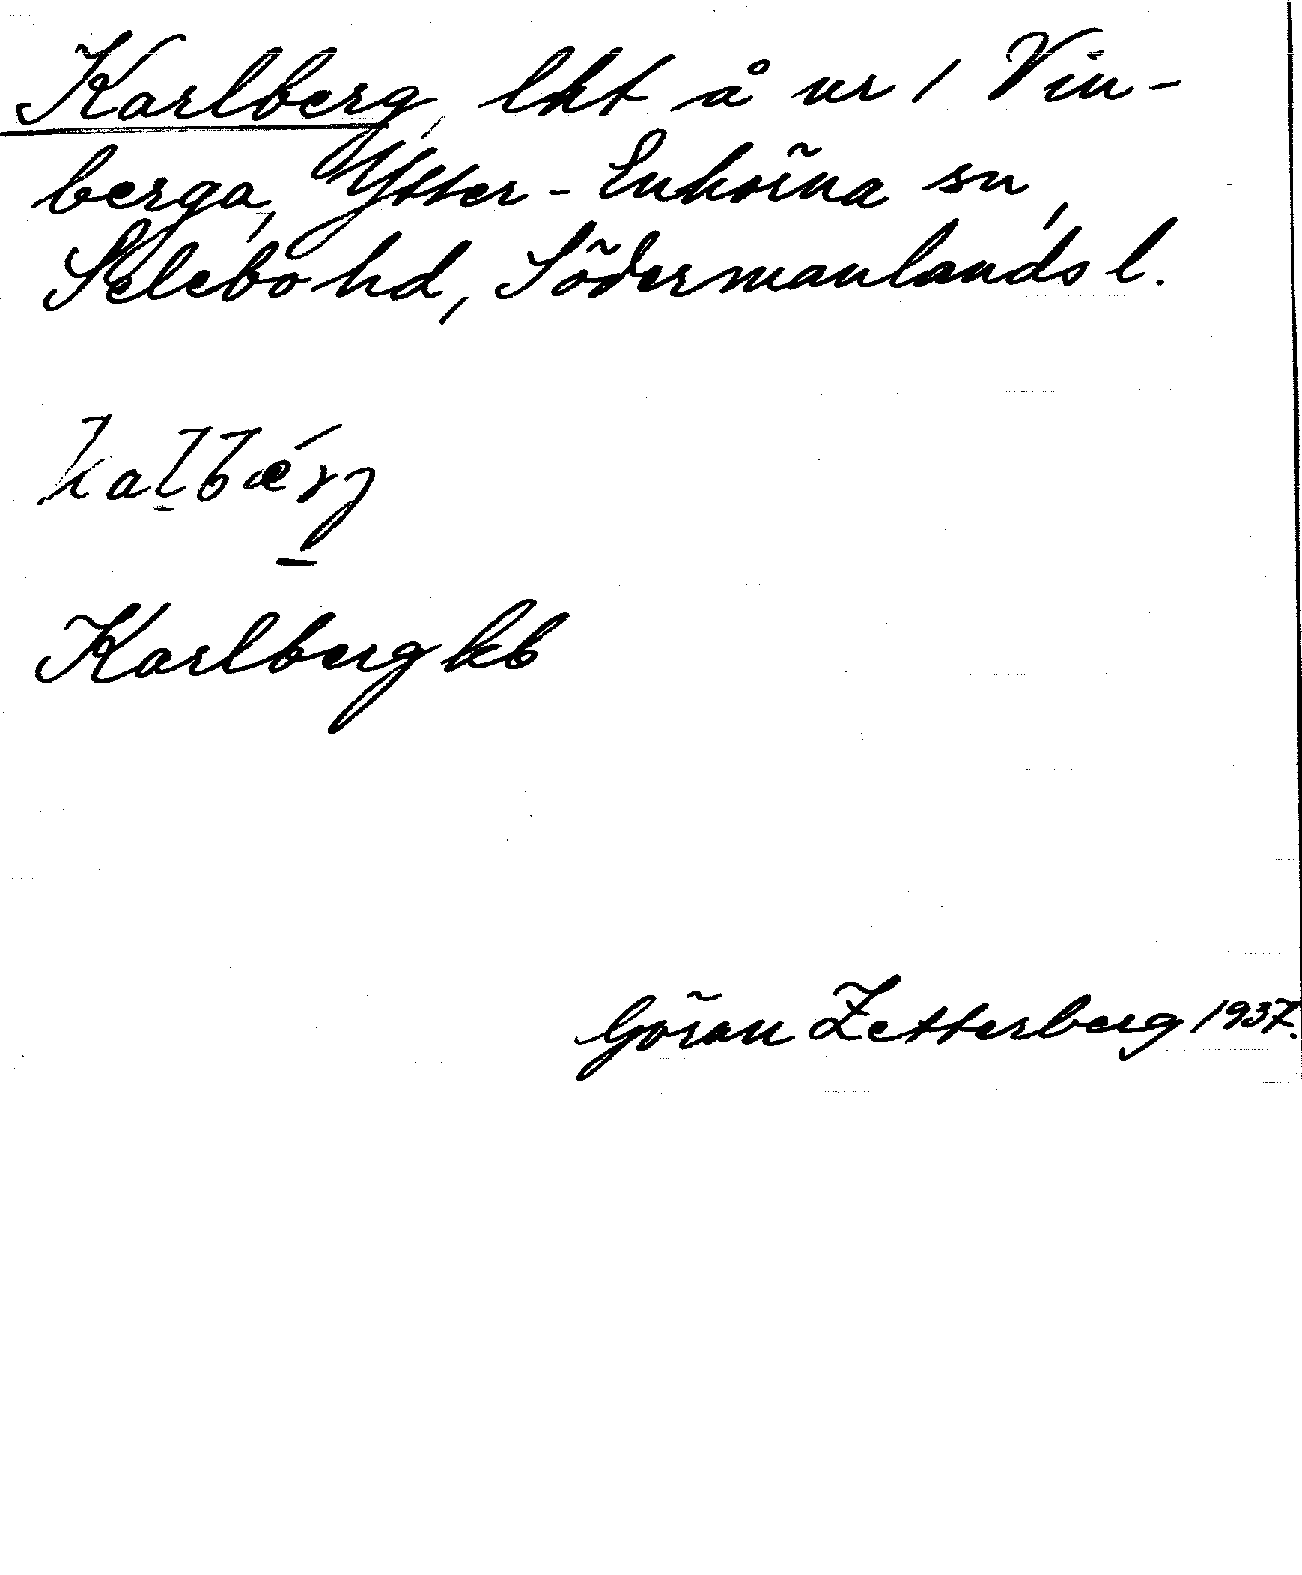 Karlberg, lht å nr 1 Vin-
berga, Ytter-Enhörna sn,
Selebo hd, Södermanlands l.
kaḷbærj
Karlberg kb
Göran Zetterberg 1937.